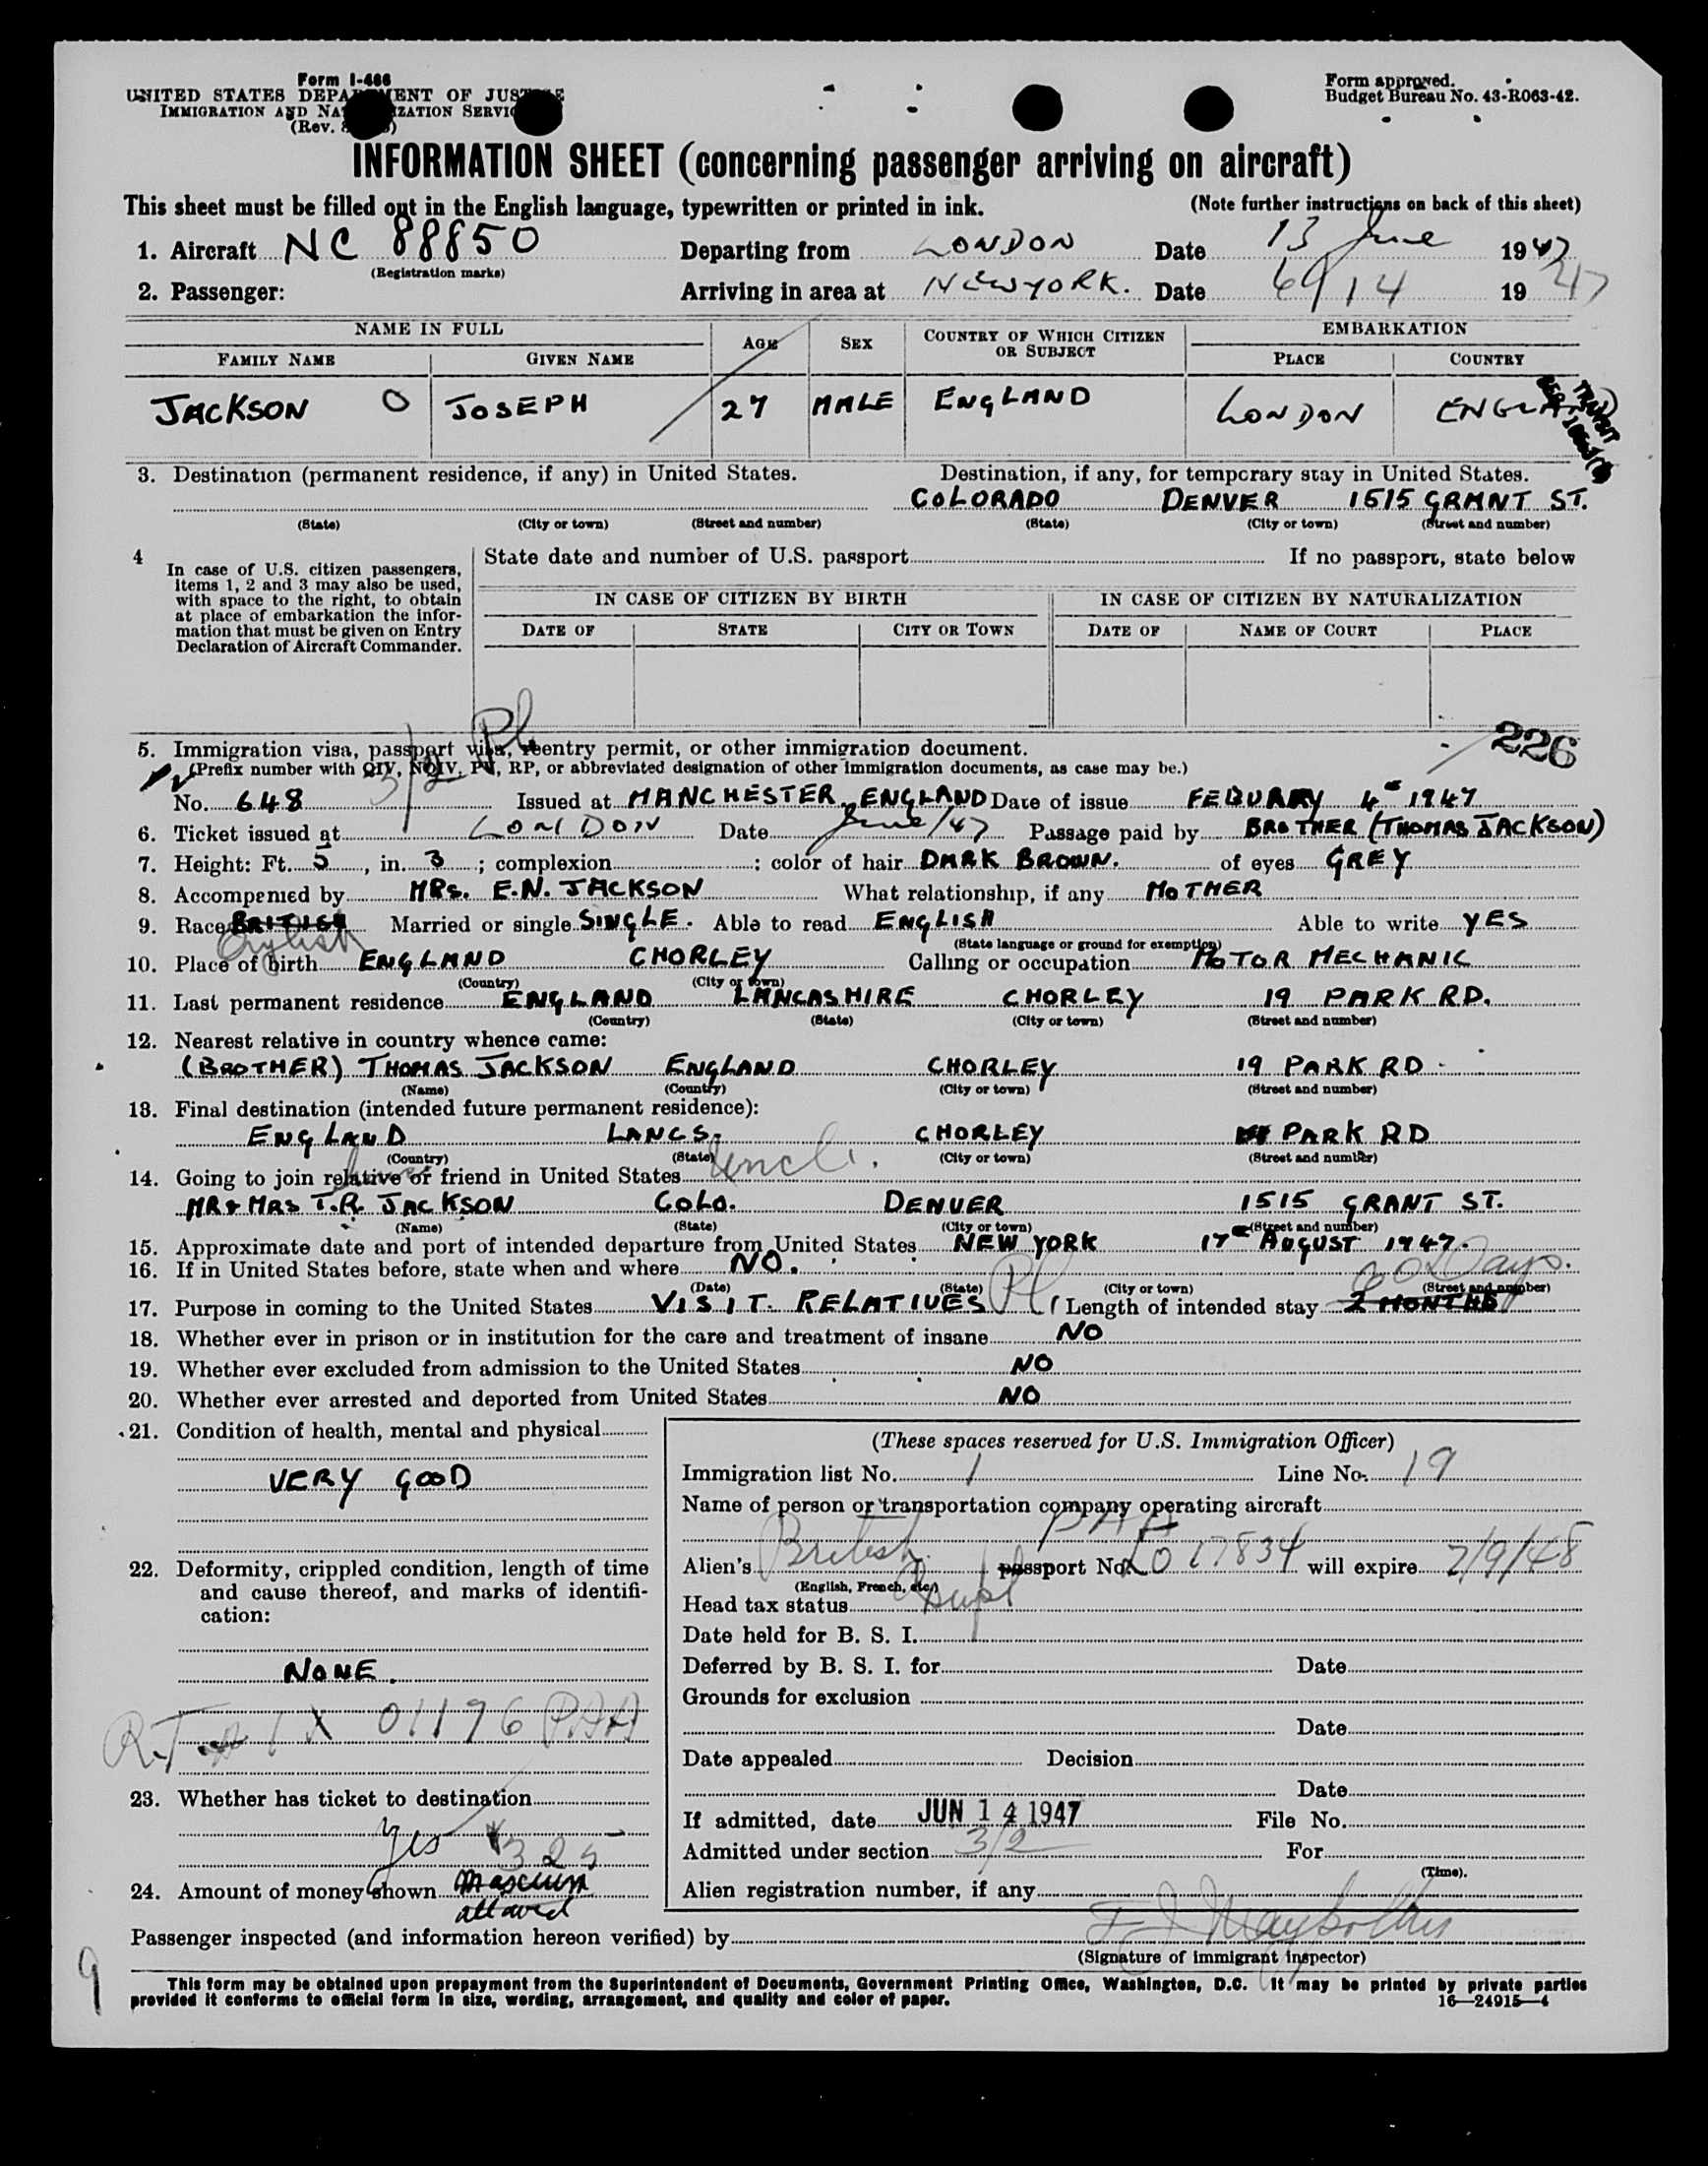 Form I-466
UNITED STATES DEPARTMENT OF JUSTICE
IMMIGRATION AND NATURALIZATION SERVICE
(Rev.
Form approved.
Budget Bureau No. 43-R063-42.
INFORMATION SHEET (concerning passenger arriving on aircraft)
This sheet must be filled out in the English language, typewritten or printed in ink. (Note further instructions on back of this sheet)
1. Aircraft NC 88850 Departing from LONDON Date 13 June 1947
(Registration marks)
2. Passenger: Arriving in area at NEWYORK. Date 6/14 1947
NAME IN FULL AGE SEX COUNTRY OF WHICH CITIZEN OR SUBJECT EMBARKATION
FAMILY NAME GIVEN NAME PLACE COUNTRY
JACKSON O JOSEPH 27 MALE ENGLAND LONDON ENGLAND
TRANSIT
3. Destination (permanent residence, if any) in United States. Destination, if any, for temporary stay in United States.
COLORADO DENVER 1515 GRANT ST.
(State) (City or town) (Street and number) (State) (City or town) (Street and number)
4 In case of U.S. citizen passengers, items 1, 2 and 3 may also be used, with space to the right, to obtain at place of embarkation the information that must be given on Entry Declaration of Aircraft Commander.
State date and number of U.S. passport If no passport, state below
IN CASE OF CITIZEN BY BIRTH IN CASE OF CITIZEN BY NATURALIZATION
DATE OF STATE CITY OR TOWN DATE OF NAME OF COURT PLACE
226
5. Immigration visa, passport visa, reentry permit, or other immigration document.
(Prefix number with QIV, NQIV, PV, RP, or abbreviated designation of other immigration documents, as case may be.)
3/2 Pl
No. 648 Issued at MANCHESTER, ENGLAND Date of issue FEBUARY 4th 1947
6. Ticket issued at LONDON Date June/47 Passage paid by BROTHER (THOMAS JACKSON)
7. Height: Ft. 5, in. 3; complexion : color of hair DARK BROWN. of eyes GREY
8. Accompenied by MRS. E.N. JACKSON What relationship, if any MOTHER
9. Race BRITISH Married or single SINGLE. Able to read ENGLISH Able to write YES
English
(State language or ground for exemption)
10. Place of birth ENGLAND CHORLEY Calling or occupation MOTOR MECHANIC
(Country) (City or town)
11. Last permanent residence ENGLAND LANCASHIRE CHORLEY 19 PARK RD.
(Country) (State) (City or town) (Street and number)
12. Nearest relative in country whence came:
(BROTHER) THOMAS JACKSON ENGLAND CHORLEY 19 PARK RD
(Name) (Country) (City or town) (Street and number)
13. Final destination (intended future permanent residence):
ENGLAND LANCS. CHORLEY PARK RD
(Country) (State) (City or town) (Street and number)
14. Going to join relative or friend in United States Uncle.
MR & MRS T.R. JACKSON COLO. DENVER 1515 GRANT ST.
(Name) (State) (City or town) (Street and number)
15. Approximate date and port of intended departure from United States NEW YORK 17th AUGUST 1947.
16. If in United States before, state when and where NO.
(Date) (State) (City or town) (Street and number)
60 Days.
17. Purpose in coming to the United States VISIT RELATIVES Pl Length of intended stay 2 MONTHS
18. Whether ever in prison or in institution for the care and treatment of insane NO
19. Whether ever excluded from admission to the United States NO
20. Whether ever arrested and deported from United States NO
21. Condition of health, mental and physical
VERY GOOD
22. Deformity, crippled condition, length of time and cause thereof, and marks of identification:
NONE.
R.T. 1 X 01196 PAA
23. Whether has ticket to destination
Yes $325
24. Amount of money shown Maxcium
allowed
(These spaces reserved for U.S. Immigration Officer)
Immigration list No. 1 Line No. 19
Name of person or transportation company operating aircraft
PAA
Alien's British passport No. LO 17834 will expire 2/9/48
(English, French, etc.)
Head tax status
Date held for B. S. I.
Deferred by B. S. I. for Date
Grounds for exclusion
Date
Date appealed Decision
Date
If admitted, date JUN 14 1947 File No.
Admitted under section 3/2 For
(Time).
Alien registration number, if any
Passenger inspected (and information hereon verified) by
(Signature of immigrant inspector)
9
This form may be obtained upon prepayment from the Superintendent of Documents, Government Printing Office, Washington, D.C. It may be printed by private parties
provided it conforms to official form in size, wording, arrangement, and quality and color of paper. 16—24915—4